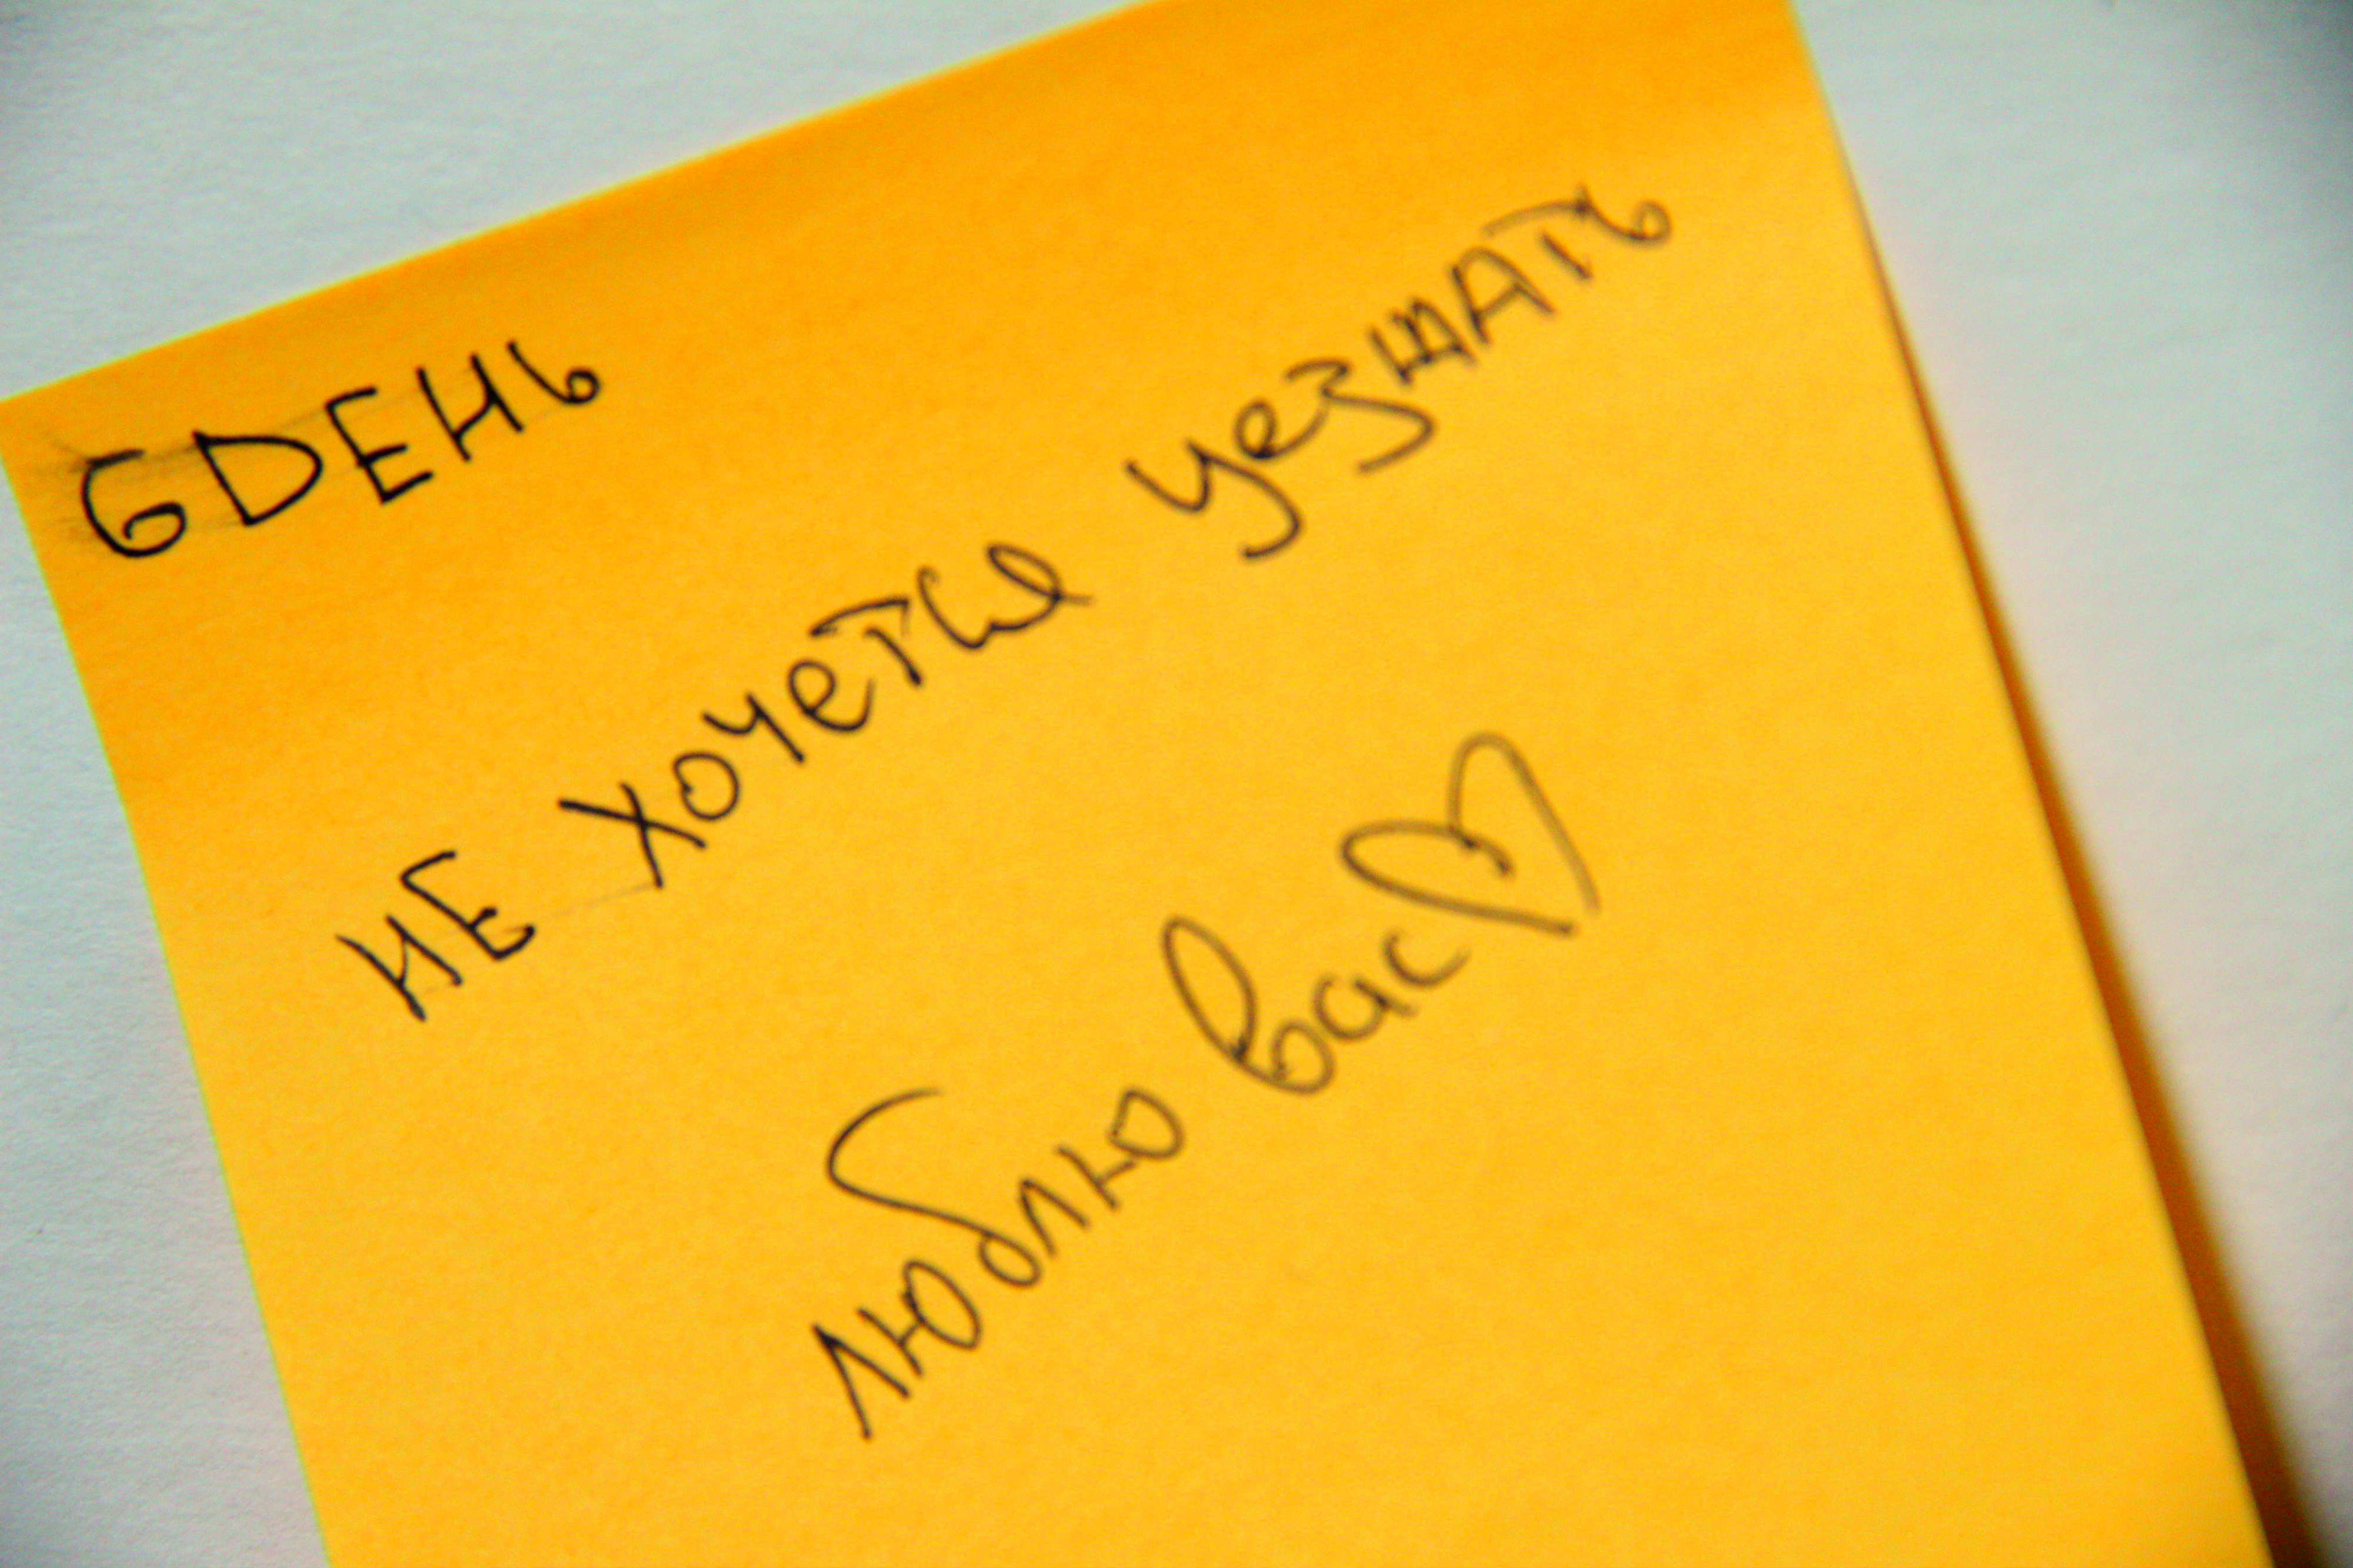 6 DEНЬ
НЕ хочется уезжать
люблю вас♡